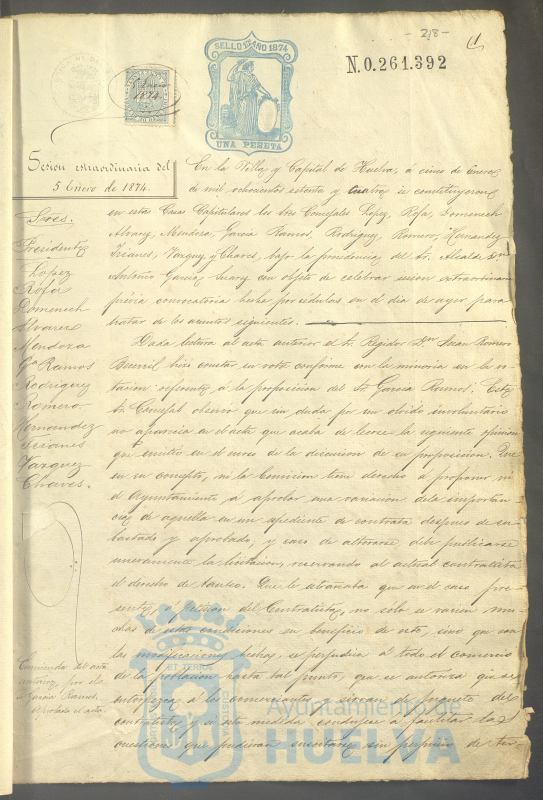 - 218 -
SELLO 11º AÑO 1874
UNA PESETA
N.0.261.392
1874
Sesion extraordinaria del
5 Enero de 1874.
Sres.
Presidente
Lopez
Rofa
Domenech
Alvarez
Mendoza
Gª Ramos
Rodriguez
Romero
Hernandez
Trianes
Vazquez
Chaves.
En la Villa y Capital de Huelva, á cinco de Enero
de mil ochocientos setenta y cuatro se constituyeron
en estas Casas Capitulares los Sres Concejales Lopez, Rofa, Domenech
Alvarez, Mendoza, Garcia Ramos, Rodriguez, Romero, Hernandez
Trianes, Vazquez y Chaves, bajo la presidencia del Sr. Alcalde Dn
Antonio Garcia con objeto de celebrar sesion extraordinaria
prévia convocatoria hecha por cédulas en el dia de ayer para
tratar de los asuntos siguientes.
Dada lectura al acta anterior el Sr. Regidor Dn Juan Romero
hizo constar su voto conforme con la minoria en la vo-
tacion referente á la proposicion del Sr Garcia Ramos. Este
Sr. Concejal observó que sin duda por un olvido involuntario
no aparecia en el acta que acaba de leerse la siguiente opinion
que emitió en el curso de la discusion de su proposicion. Que
en su concepto, ni la Comision tiene derecho á proponer ni
el Ayuntamiento á aprobar una variacion de la importan-
cia de aquella en un espediente de contrata despues de su-
bastado y aprobado, y caso de alterarse debe publicarse
nuevamente la licitacion, reservando al actual contratista
el derecho de tanteo. Que le estrañaba que en el caso pre-
sente, á peticion del Contratista, no solo se varien mu-
chas de estas condiciones en beneficio de este, sino que con
las modificaciones hechas, se perjudica á todo el comercio
de la poblacion hasta tal punto, que se autoriza que se
á los comerciantes
contratista, y si esta medida condujese á facilitar la
cuestiones que pudieran suscitarse sin perjuicio de ter-
Enmienda del acta
anterior, por el Sr
Garcia Ramos,
aprobada el acta.
Ayuntamiento de
HUELVA